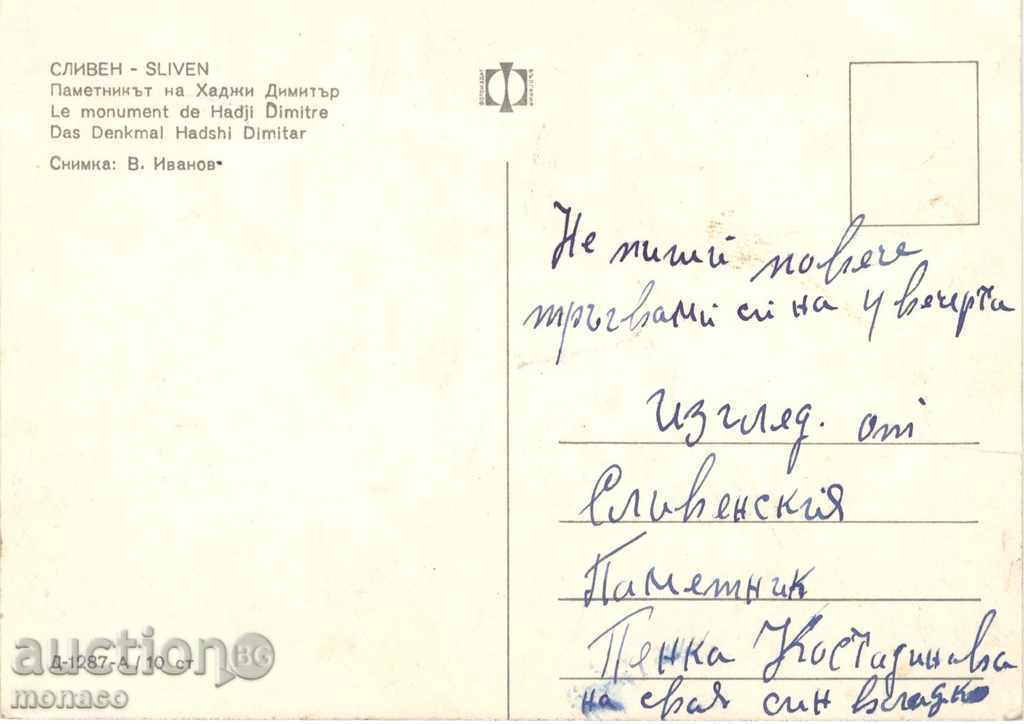 СЛИВЕН - SLIVEN
Паметникът на Хаджи Димитър
Le monument de Hadji Dimitre
Das Denkmal Hadshi Dimitar
Снимка: В. Иванов
ФОТОИЗДАТ
БЪЛГАРИЯ
Не пиши повече
тръгвами си на 4 вечерта
Изглед. от
Сливенския
Паметник
Пенка Костадинова
на своя син
Д-1287-А / 10 ст.
auction BG
monaco